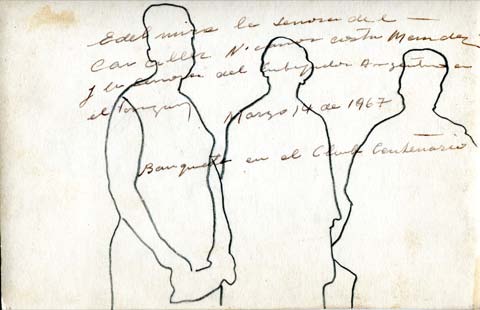 Edelmira la senora del
Canciller Nicanor Costa Mendez
y la senora del Embajador Argentino en
el Paraguay Marzo 14 de 1967
Banquete en el Club Centenario